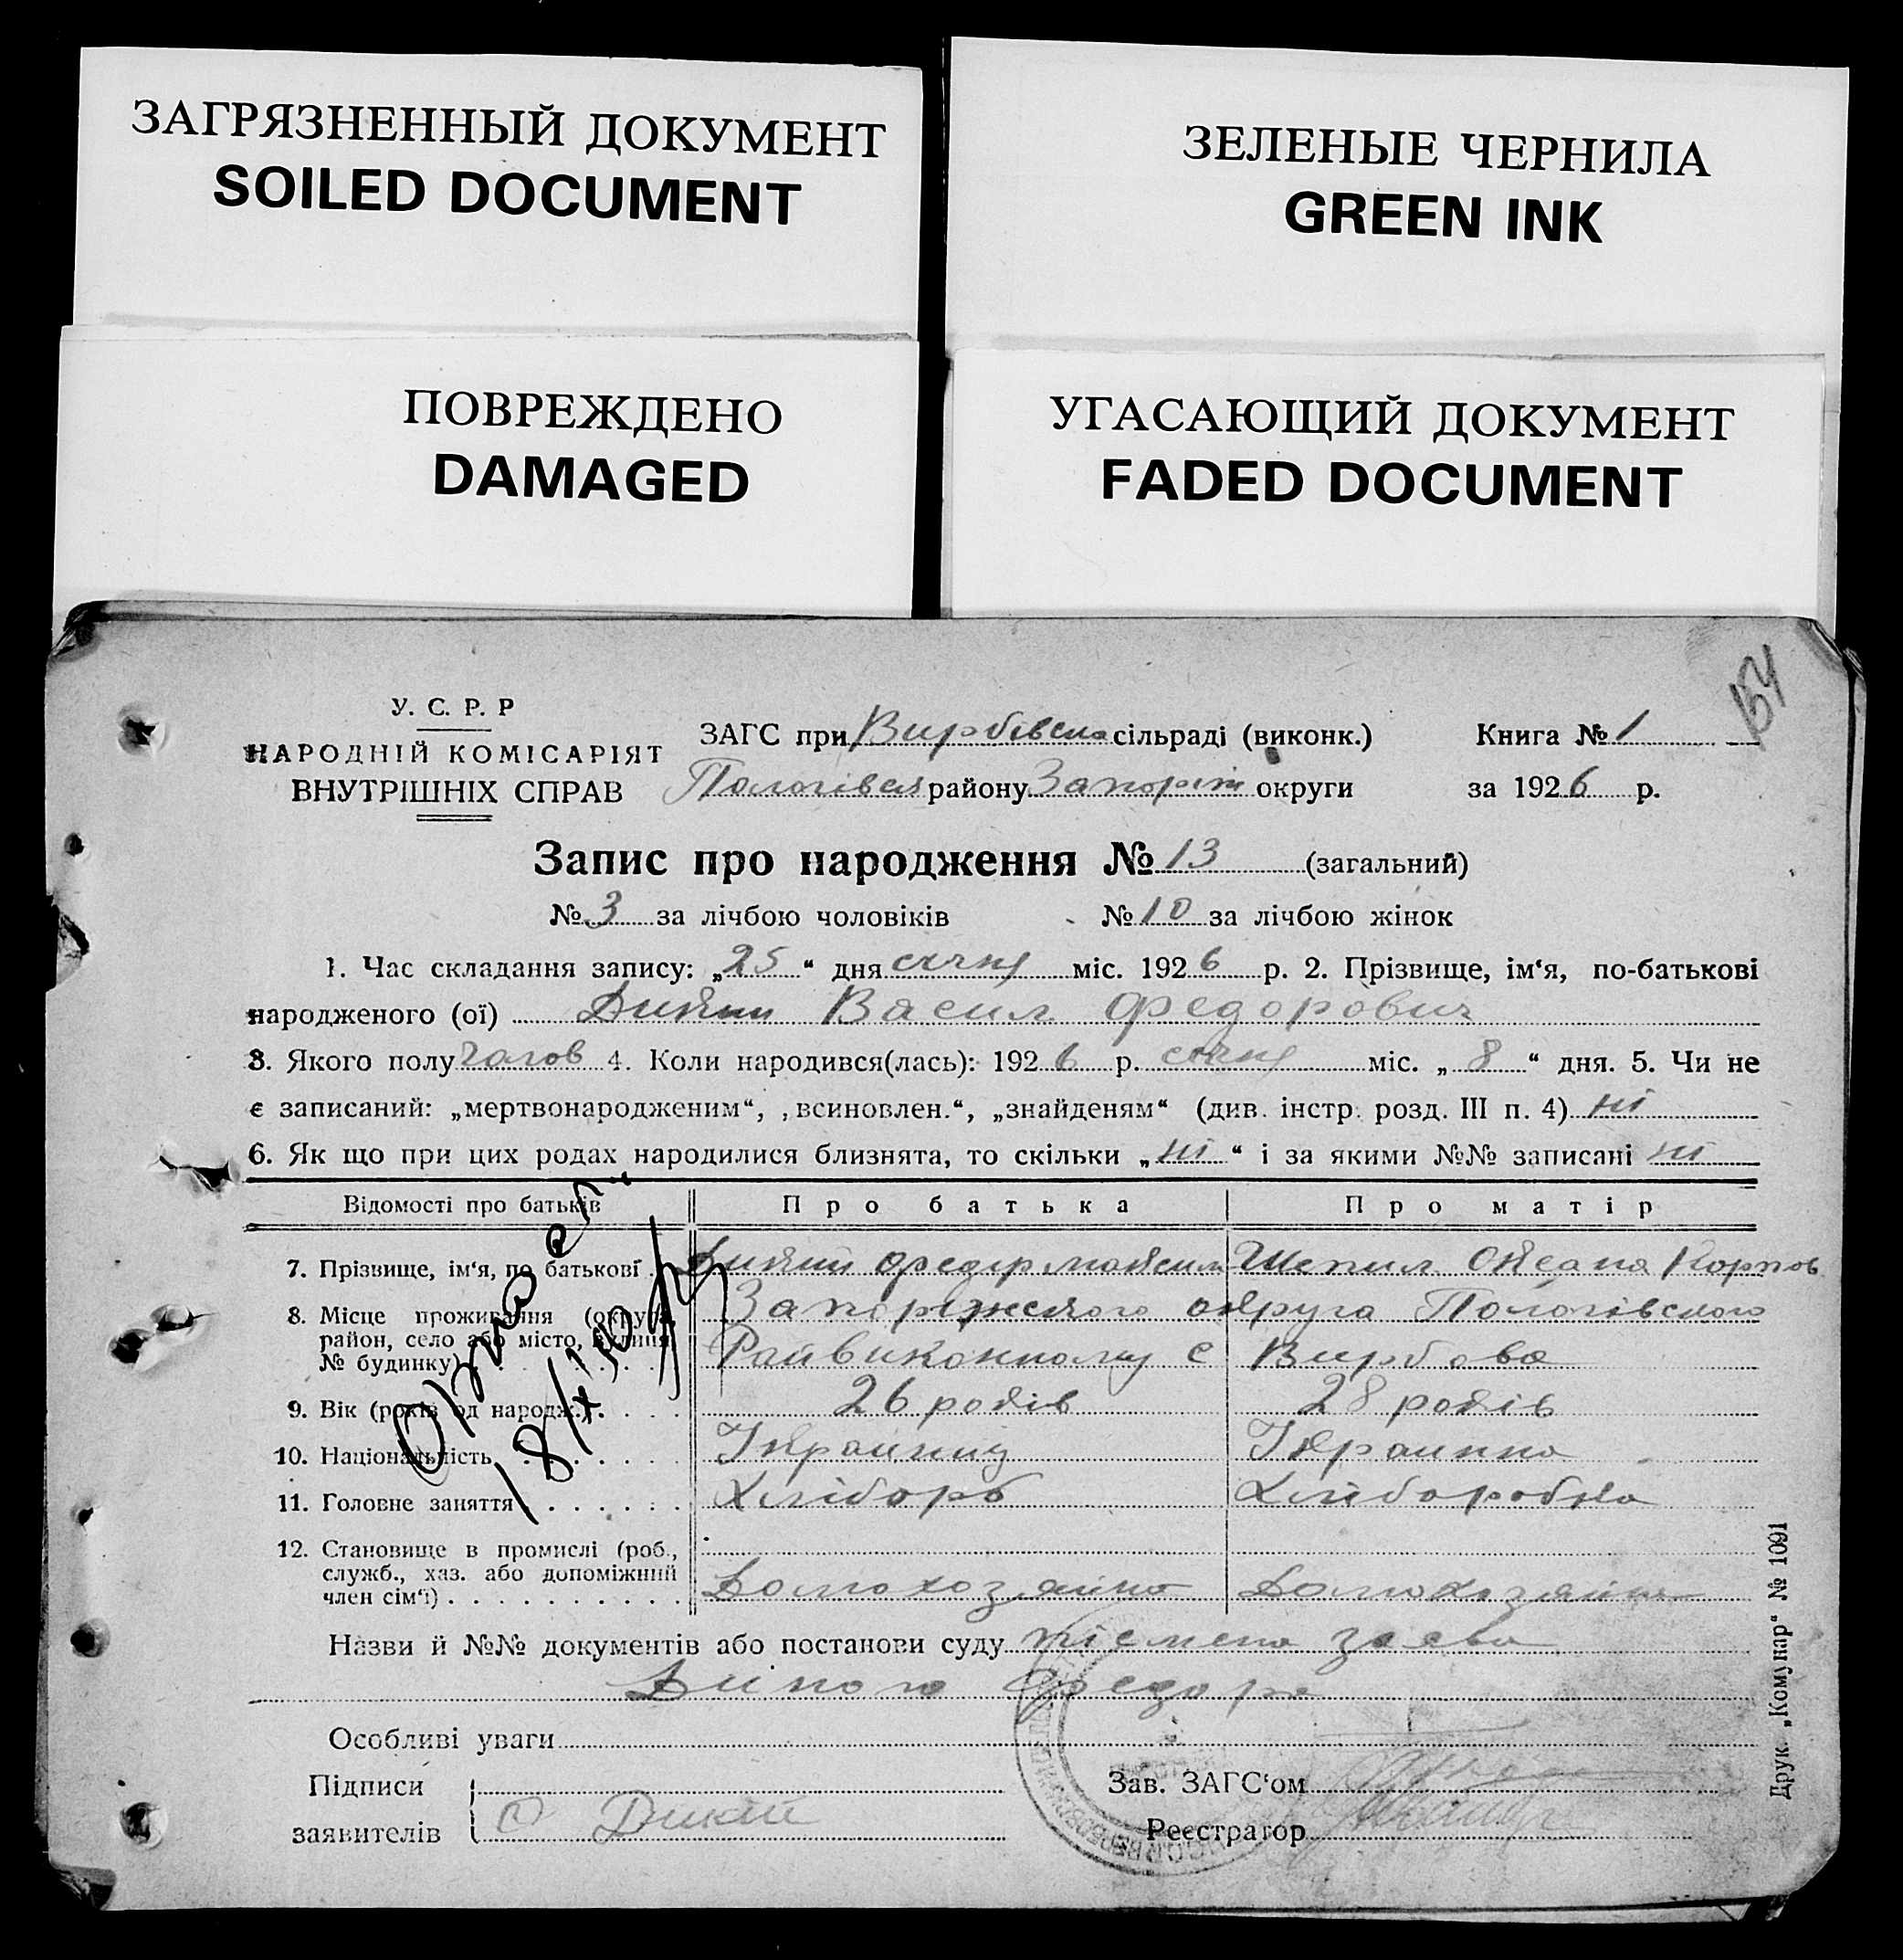 ЗАГРЯЗНЕННЫЙ ДОКУМЕНТ
SOILED DOCUMENT
ЗЕЛЕНЫЕ ЧЕРНИЛА
GREEN INK
ПОВРЕЖДЕНО
DAMAGED
УГАСАЮЩИЙ ДОКУМЕНТ
FADED DOCUMENT
154
У. С. Р. Р
НАРОДНІЙ КОМІСАРІЯТ
ВНУТРІШНІХ СПРАВ
ЗАГС при Вирбівсла сільраді (виконк.) Книга № 1
Пологівся району Запоріж округи за 1926 р.
Запис про народження № 13 (загальний)
№ 3 за лічбою чоловіків № 10 за лічбою жінок
1. Час складання запису: „25“ дня січня міс. 1926 р. 2. Прізвище, ім‘я, по-батькові
народженого (ої) Дикий Васил Федорович
3. Якого полу чолов 4. Коли народився(лась): 1926 р. січня міс. „8“ дня. 5. Чи не
є записаний: „мертвонародженим“, „всиновлен.“, „знайденям“ (див. інстр. розд. III п. 4) ні
6. Як що при цих родах народилися близнята, то скільки „ні“ і за якими №№ записані ні
Відомості про батьків Про батька Про матір
7. Прізвище, ім‘я, по батькові Дикий Федір Максим Шепил Оксана Карпов
8. Місце проживання (округа, Запоріжского округа Пологівского
район, село або місто, вулиця,
№ будинку) Райвиконкому с Вирбова
9. Вік (років од народж.) 26 років 28 років
10. Національність Україниц Украинка
11. Головне заняття Хлібороб Хліборобка
12. Становище в промислі (роб.,
служб., хаз. або допоміжний
член сім‘ї) Домохозяйка
Назви й №№ документів або постанови суду пісмена заява
Дикого Федора
Особливі уваги
Підписи
заявителів Дикий
Зав. ЗАГС‘ом
Реєстратор
Друк. „Комунар“ № 1091